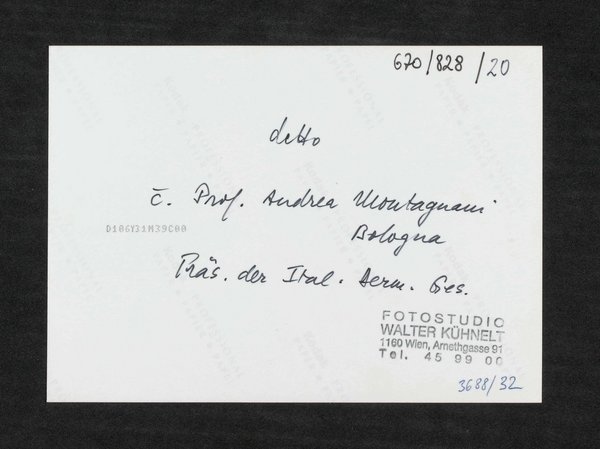 670/828/20
detto
č. Prof. Andrea Montagnani
Bologna
D106Y31M39C00
Präs. der Ital. Derm. Ges.
FOTOSTUDIO
WALTER KÜHNELT
1160 Wien, Arnethgasse 91
Tel. 45 99 00
3688/32